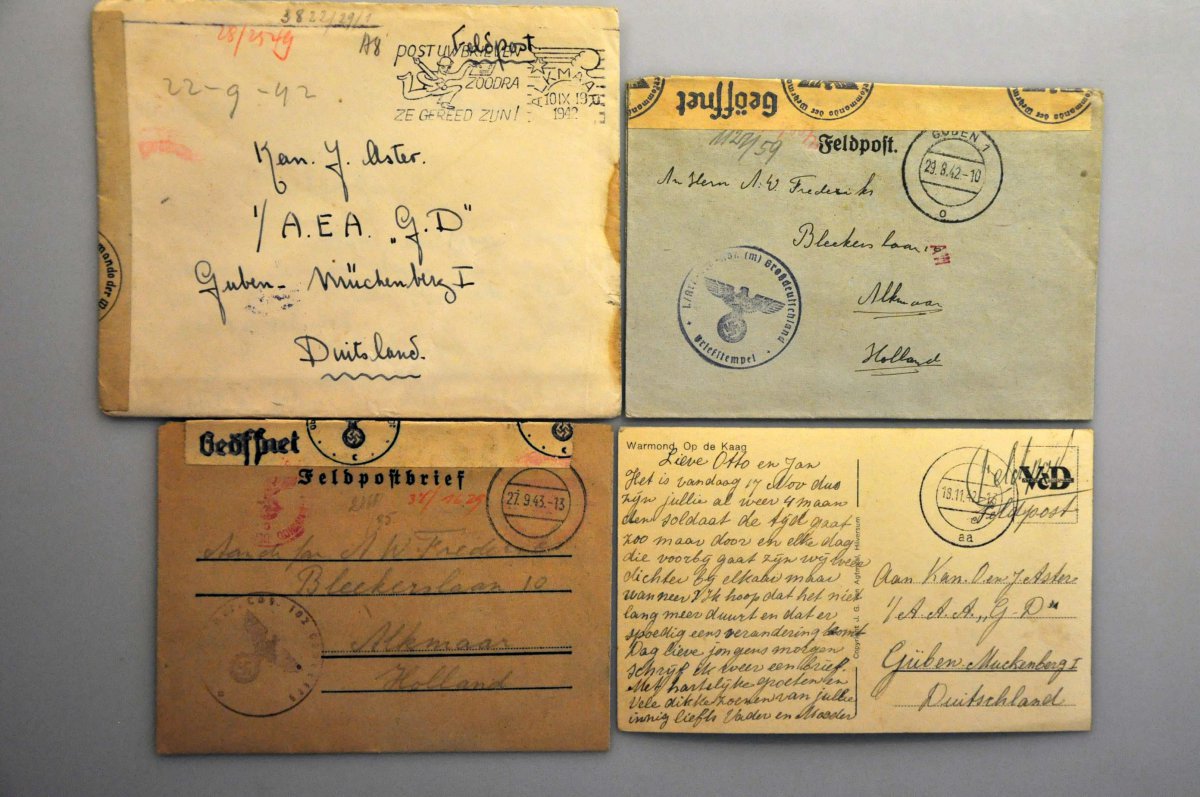 3822/29/1
28/2549
A8
Feldpost
POST UW BRIEVEN
ZOODRA
ZE GEREED ZIJN!
ALKMAAR
10 IX 19
1942
22-9-42
Kan. J. Aster.
1/ A.E.A. „G.D"
Guben- Mückenberg I
Duitsland.
Geöffnet
1129/59
Feldpost.
GUBEN 1
29.8.42-10
An Herrn A.W. Frederiks
Bleekerslaan 10
Alkmaar
Holland
(m) Großdeutschland
Briefstempel
Geöffnet
Feldpostbrief
27.9.43.-13
A W Frederiks
Bleekerslaan 10
Alkmaar
Holland
Warmond, Op de Kaag
Lieve Otto en Jan
Het is vandaag 17 Nov dus
zijn jullie al weer 4 maan
den soldaat de tijd gaat
zoo maar door en elke dag
die voorbij gaat zijn wij weer
dichter bij elkaar maar
wanneer? Ik hoop dat het niet
lang meer duurt en dat er
spoedig eens verandering komt
Dag lieve jongens morgen
schrijf ik weer een brief.
Met hartelijke groeten en
Vele dikke zoenen van jullie
innig liefh Vader en Moeder
Copyright J. G. v. Agtmaal, Hilversum
V&D
Feldpost
18.11.42
aa
Feldpost
Aan Kan. O en J Aster
1/ A.A.A. „G-D"
Güben. Muckenberg I
Duitschland